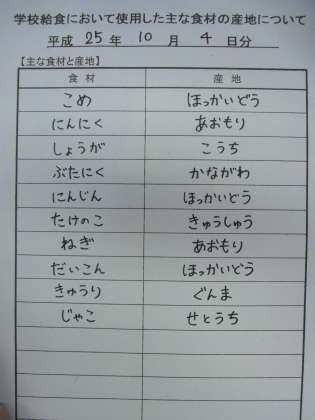 学校給食において使用した主な食材の産地について
平成 25 年 10 月 4 日分
【主な食材と産地】
食材 産地
こめ ほっかいどう
にんにく あおもり
しょうが こうち
ぶたにく かながわ
にんじん ほっかいどう
たけのこ きゅうしゅう
ねぎ あおもり
だいこん ほっかいどう
きゅうり ぐんま
じゃこ せとうち